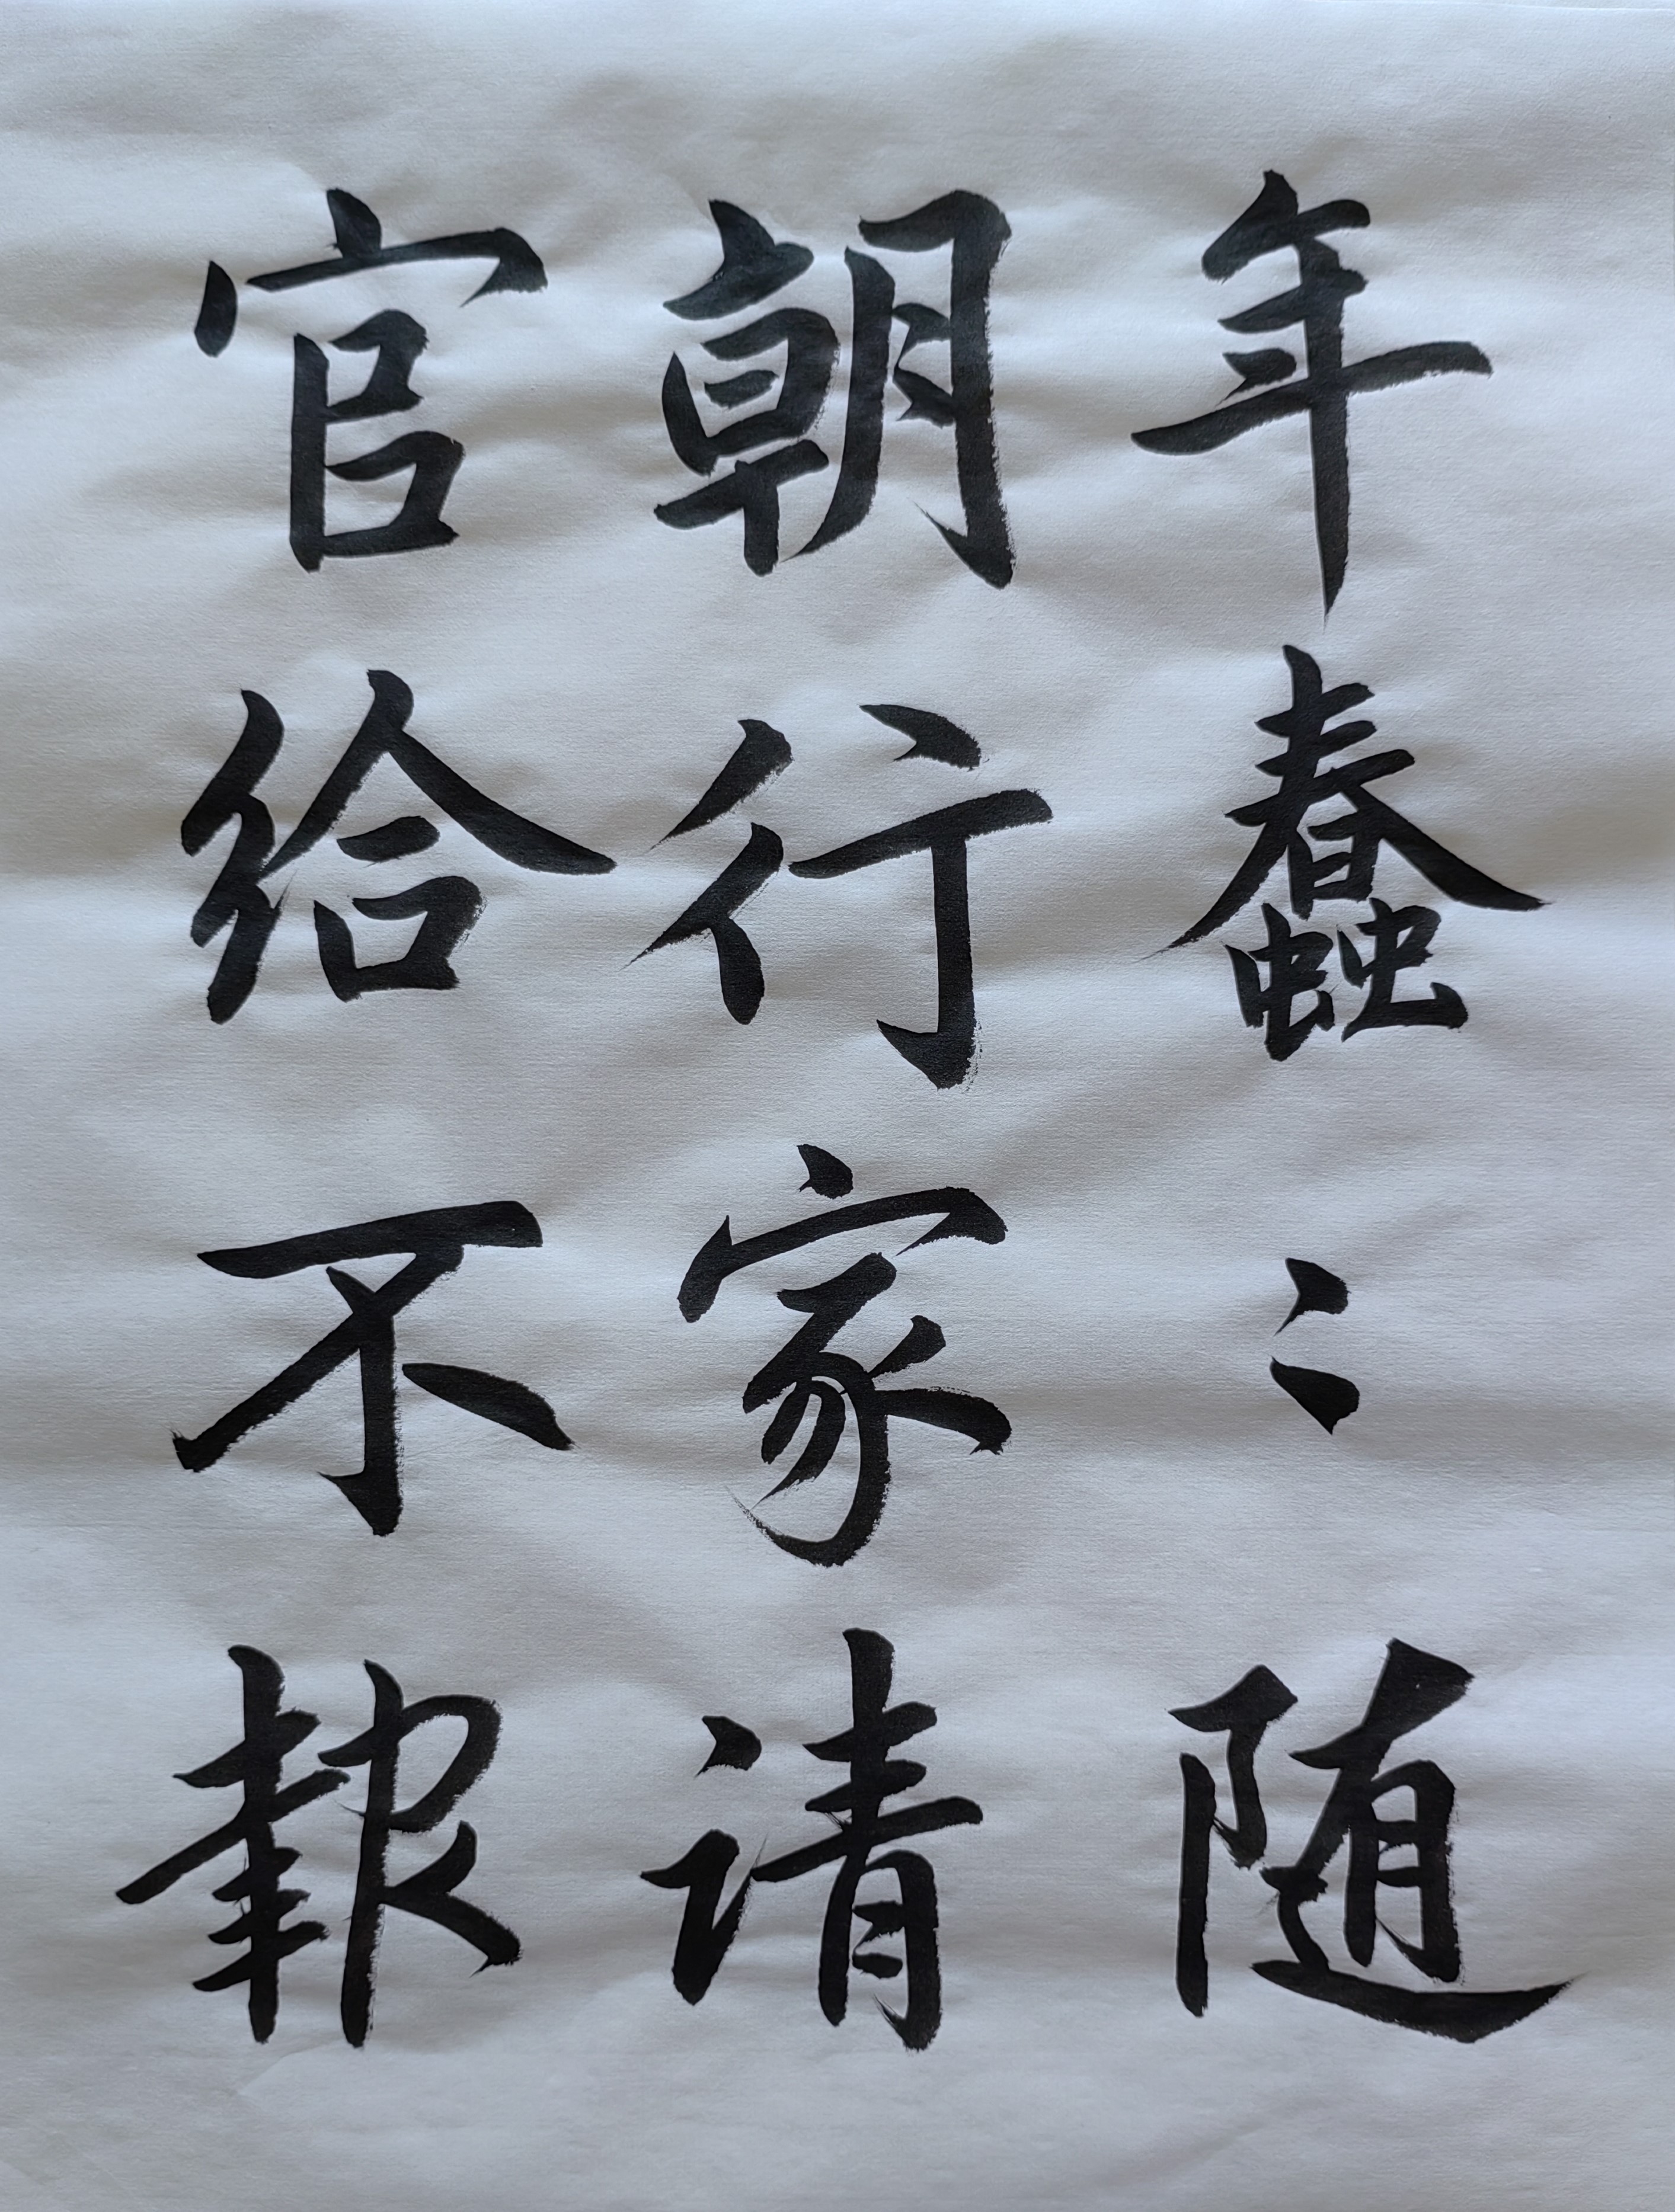 年蠢〻随
朝行家请
官给不報